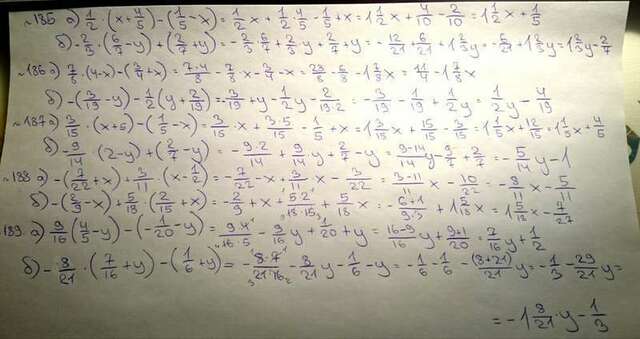 ~185 а) 1/2 · (x + 4/5) - (1/5 - x) = 1/2 x + 1/2 · 4/5 - 1/5 + x = 1 1/2 x + 4/10 - 2/10 = 1 1/2 x + 1/5
б) -2/3 · (6/7 - y) + (2/7 + y) = -2/3 · 6/7 + 2/3 y + 2/7 + y = -12/21 + 6/21 + 1 2/3 y = -6/21 + 1 2/3 y = 1 2/3 y - 2/7
~186 а) 7/8 · (4 - x) - (3/4 + x) = 7·4/8 - 7/8 x - 3/4 - x = 28/8 - 6/8 - 1 7/8 x = 11/4 - 1 7/8 x
б) -(3/19 - y) - 1/2 (y + 2/19) = -3/19 + y - 1/2 y - 2/19·2 = -3/19 - 1/19 + 1/2 y = 1/2 y - 4/19
~187 а) 3/15 · (x + 5) - (1/5 - x) = 3/15 · x + 3·5/15 - 1/5 + x = 1 3/15 x + 15/15 - 3/15 = 1 1/5 x + 12/15 = 1 1/5 x + 4/5
б) -9/14 (2 - y) + (2/7 - y) = -9·2/14 + 9/14 y + 2/7 - y = 9-14/14 y - 9/7 + 2/7 = -5/14 y - 1
~188 а) -(7/22 + x) + 3/11 · (x - 1/2) = -7/22 - x + 3/11 x - 3/22 = 3-11/11 x - 10/22 = -8/11 x - 5/11
б) -(2/9 - x) + 5/18 · (2/15 + x) = -2/9 + x + 5·2/18·15 + 5/18 x = -6+1/9·3 + 1 5/18 x = 1 5/18 x - 7/27
189 а) 9/16 (4/5 - y) - (-1/20 - y) = 9·4/16·5 - 9/16 y + 1/20 + y = 16-9/16 y + 9+1/20 = 7/16 y + 1/2
б) -8/21 · (7/16 + y) - (1/6 + y) = -8·7/21·16 - 8/21 y - 1/6 - y = -1/6 - 1/6 - (8+21)/21 y = -1/3 - 29/21 y =
= -1 8/21 · y - 1/3